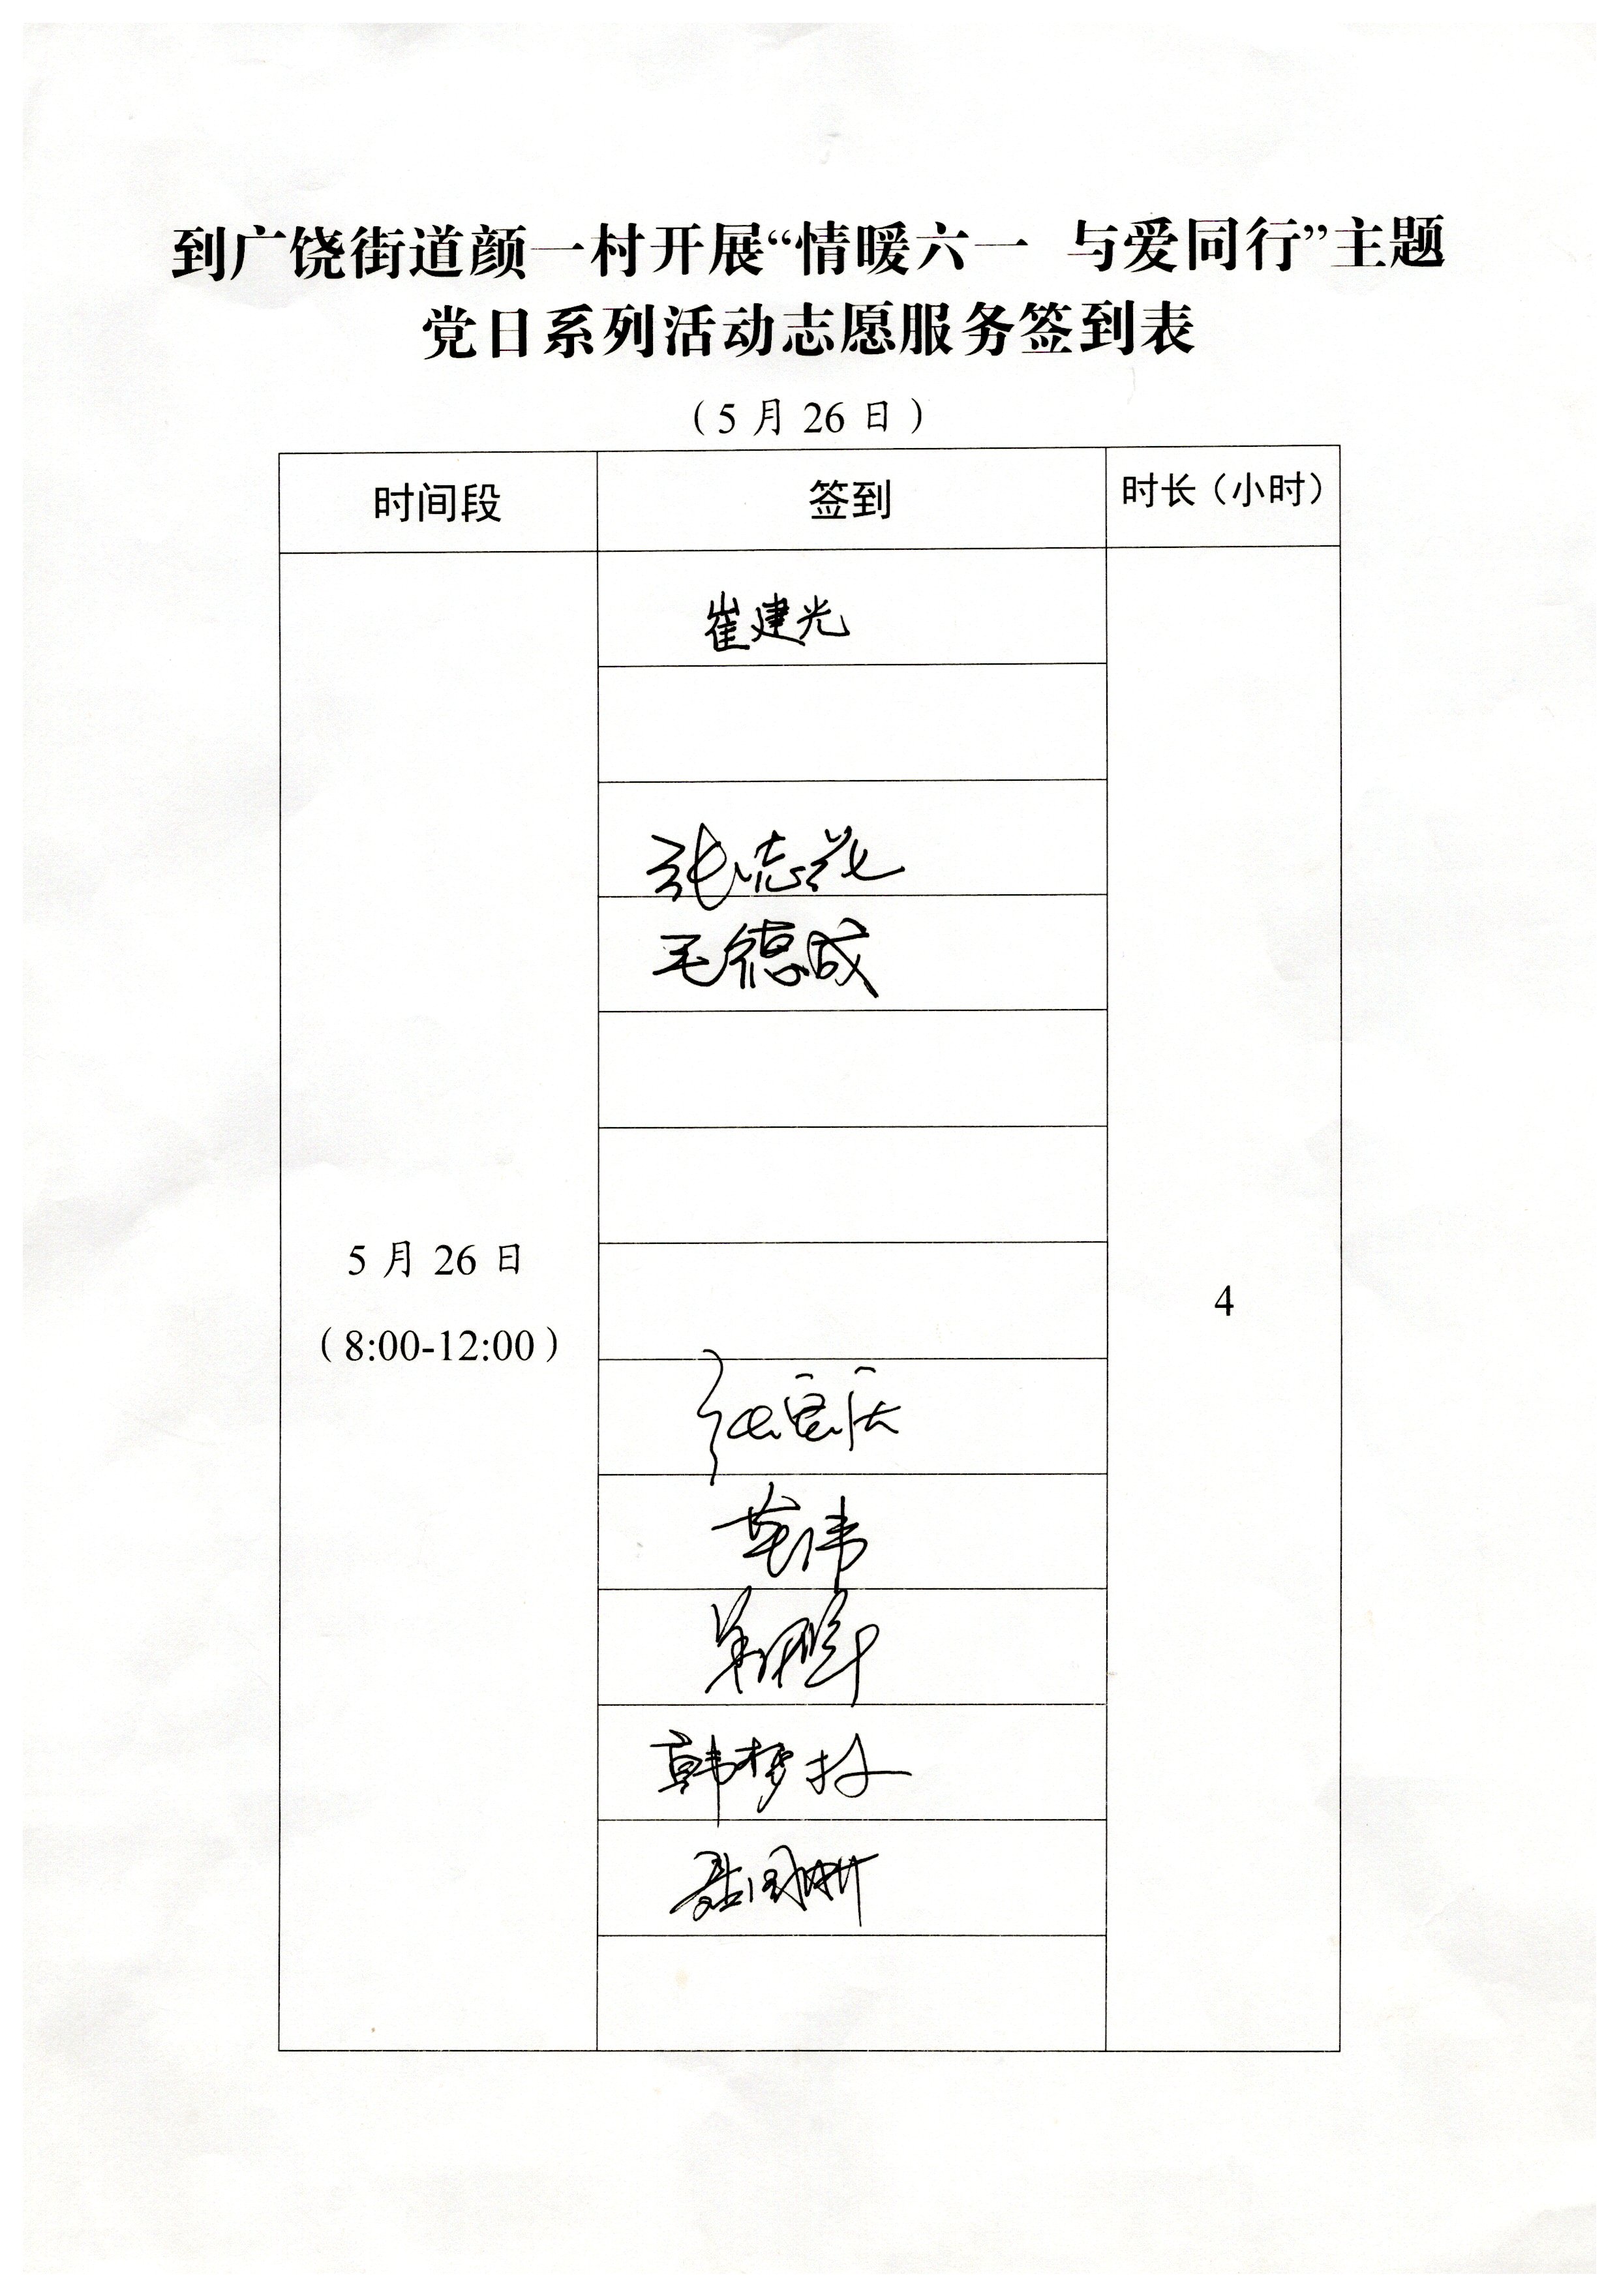 到广饶街道颜一村开展“情暖六一 与爱同行”主题
党日系列活动志愿服务签到表
（5月26日）
时间段 签到 时长（小时）
崔建光
毛德成
5月26日
（8:00-12:00）
4
韩梦林